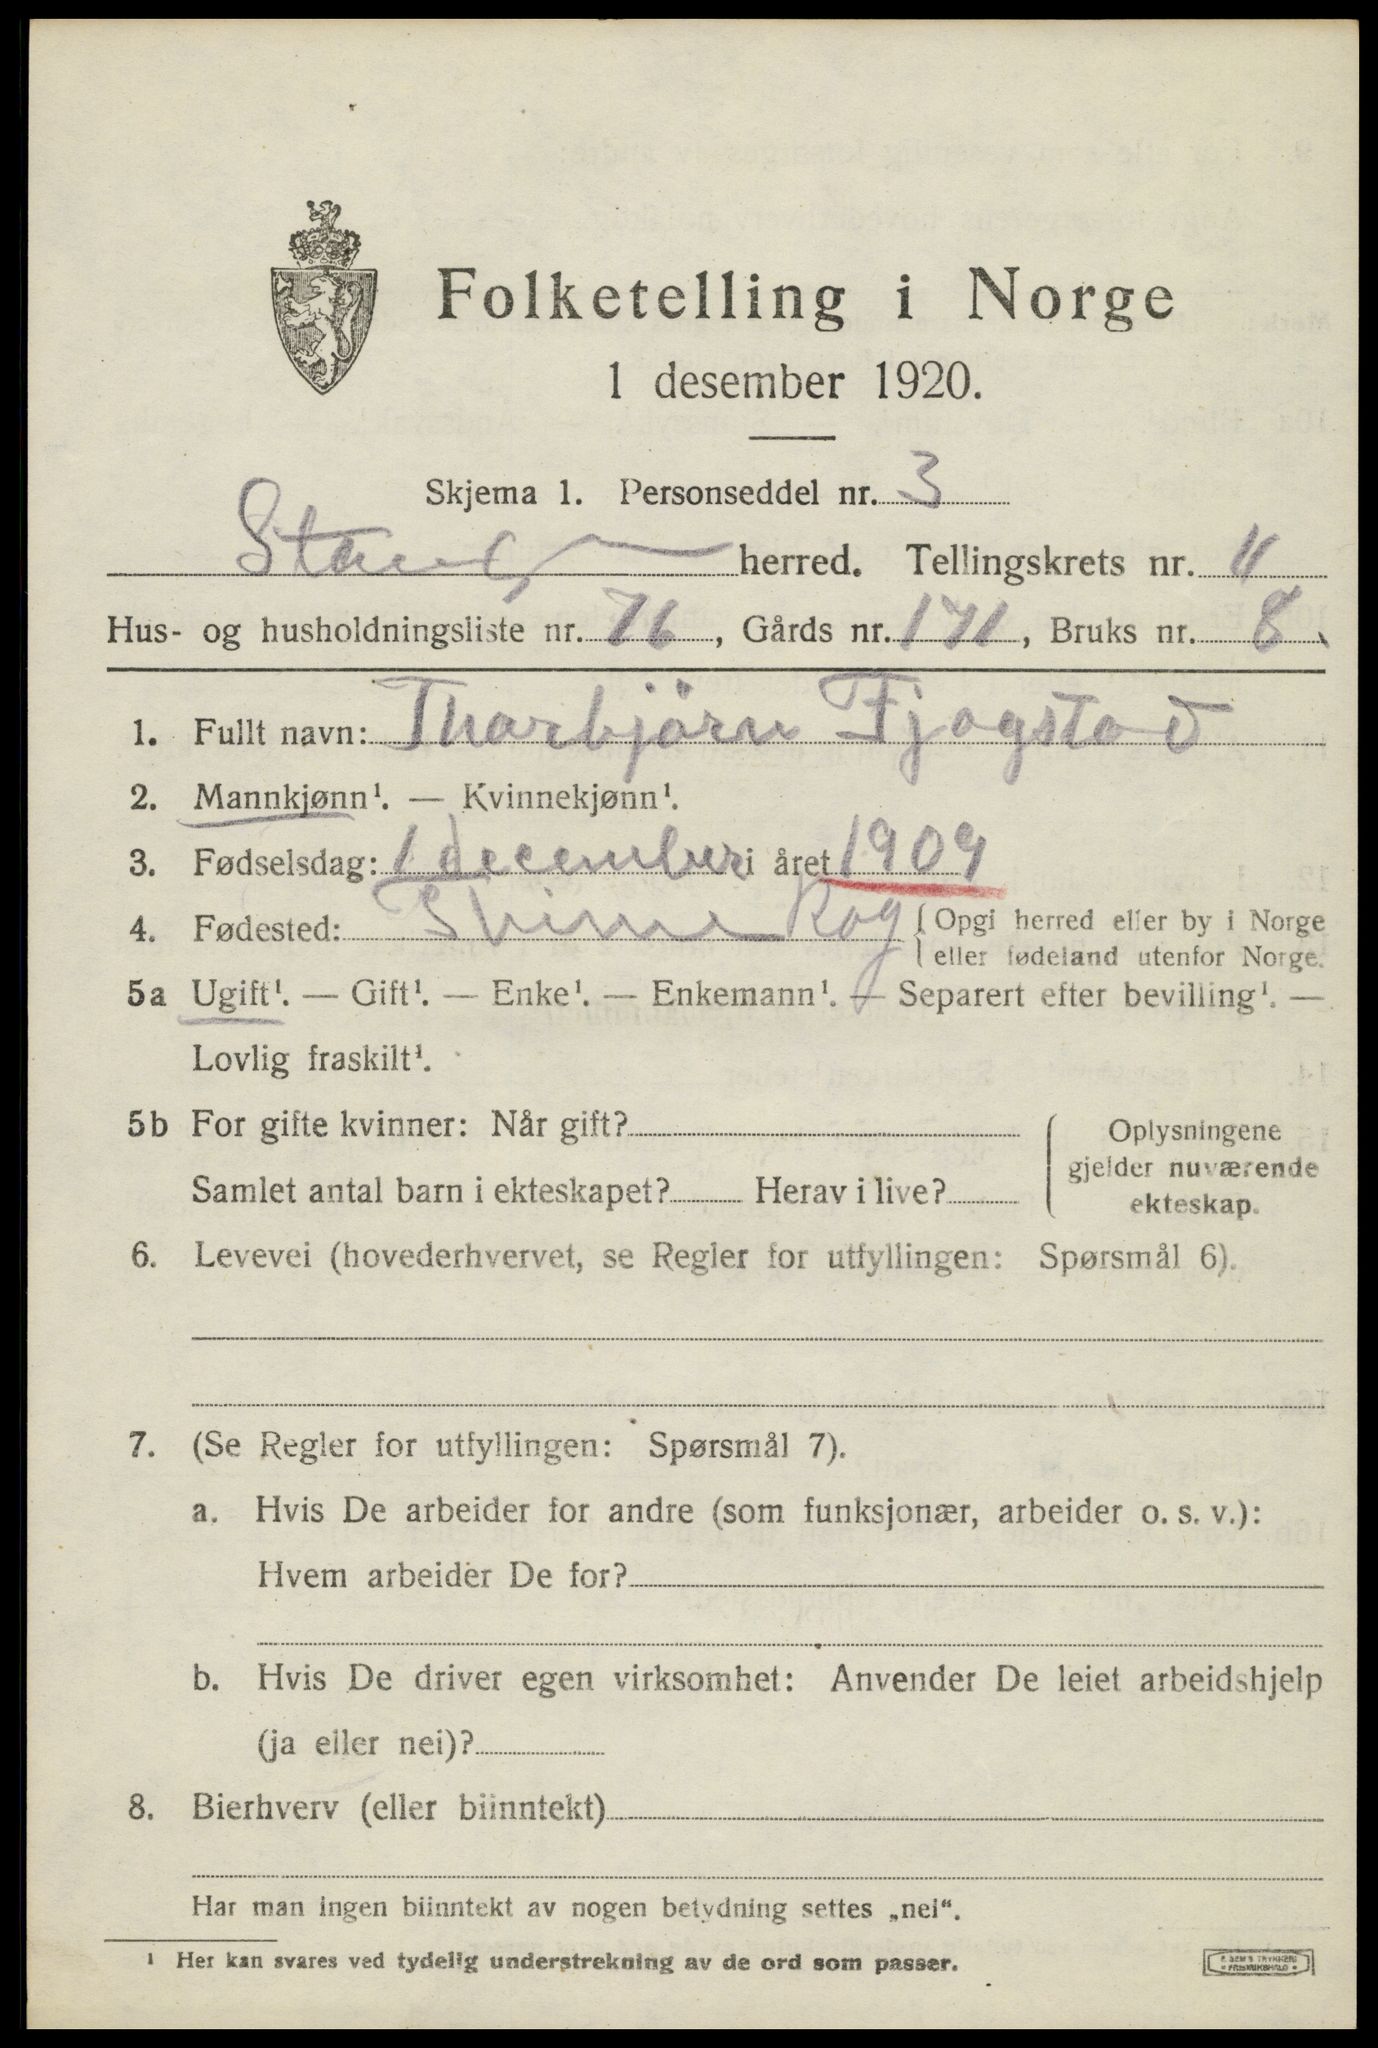 Folketelling i Norge
1 desember 1920.
Skjema 1. Personseddel nr. 3
Stange herred. Tellingskrets nr. 11
Hus- og husholdningsliste nr. 76, Gårds nr. 171, Bruks nr. 8
1. Fullt navn: Thorbjörn Fjogstad
2. Mannkjønn¹. — Kvinnekjønn¹.
3. Fødselsdag: 1 december i året 1909
4. Fødested: Thime Rog {Opgi herred eller by i Norge
eller fødeland utenfor Norge.
5a Ugift¹. — Gift¹. — Enke¹. — Enkemann¹. — Separert efter bevilling¹. —
Lovlig fraskilt¹.
5b For gifte kvinner: Når gift?
Samlet antal barn i ekteskapet? Herav i live?
Oplysningene
gjelder nuværende
ekteskap.
6. Levevei (hovederhvervet, se Regler for utfyllingen: Spørsmål 6).
7. (Se Regler for utfyllingen: Spørsmål 7).
a. Hvis De arbeider for andre (som funksjonær, arbeider o. s. v.):
Hvem arbeider De for?
b. Hvis De driver egen virksomhet: Anvender De leiet arbeidshjelp
(ja eller nei)?
8. Bierhverv (eller biinntekt)
Har man ingen biinntekt av nogen betydning settes „nei“.
¹ Her kan svares ved tydelig understrekning av de ord som passer.